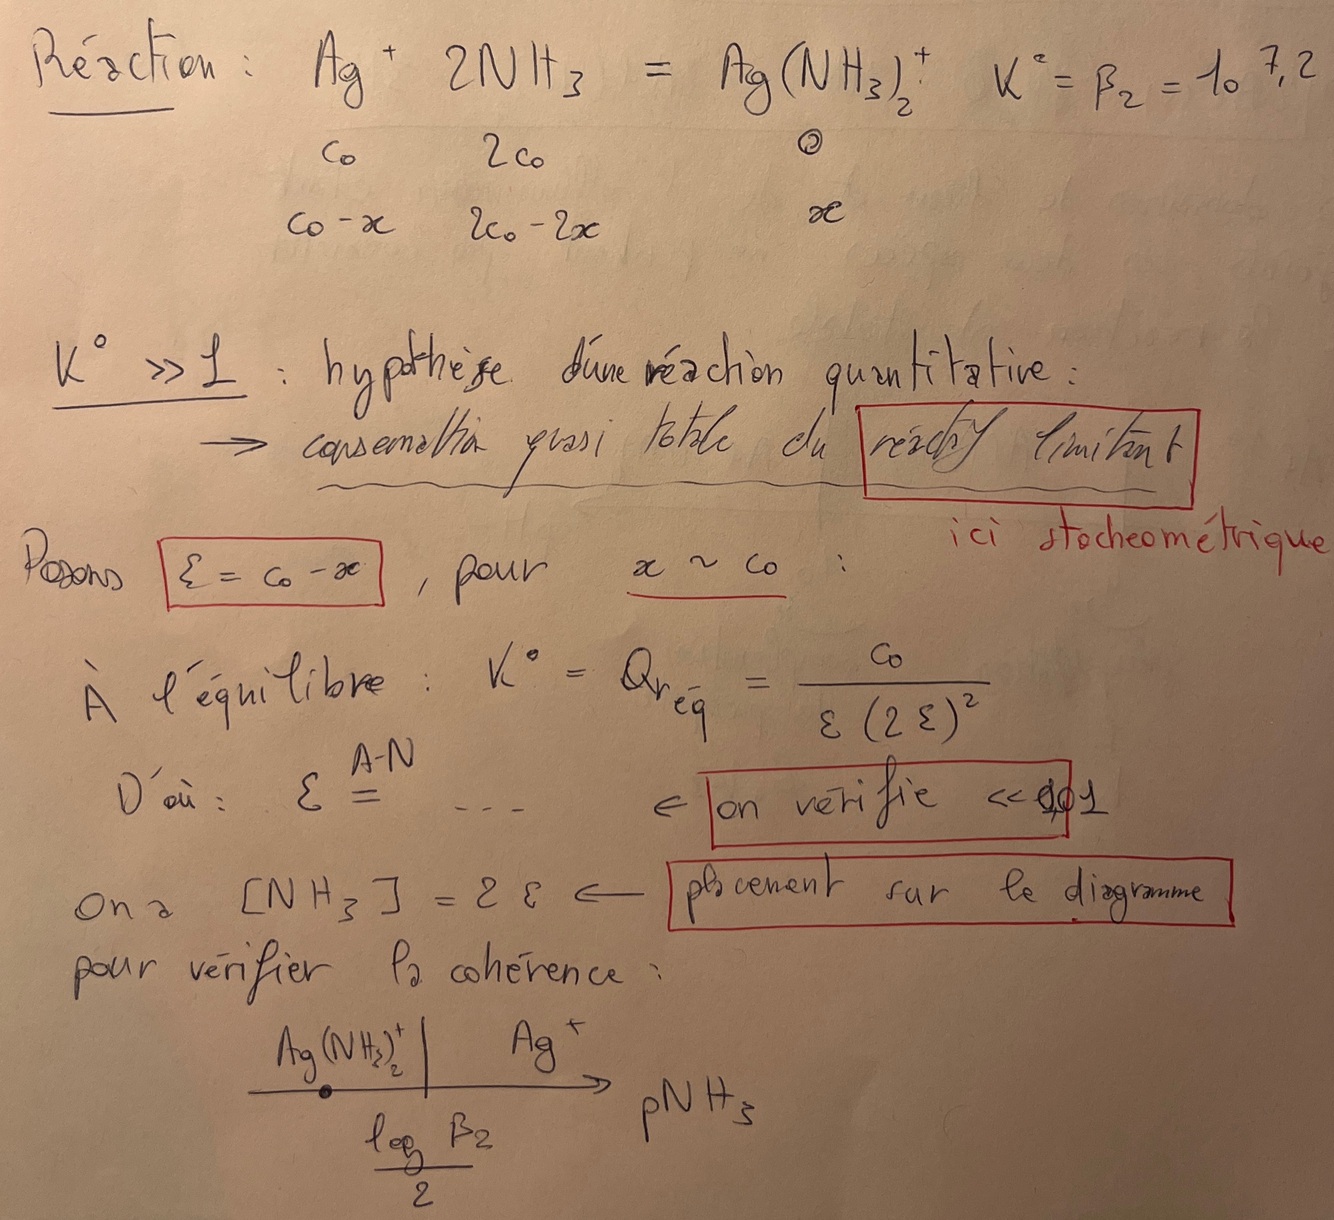 Réaction : Ag⁺ 2NH₃ = Ag(NH₃)₂⁺ K° = β₂ = 10^7,2
c₀ 2c₀ 0
c₀-x 2c₀-2x x
K° >> 1 : hypothèse d'une réaction quantitative :
→ consommation quasi totale du réactif limitant
ici stocheométrique
Posons ε = c₀ - x , pour x ~ c₀ :
À l'équilibre : K° = Qr éq = c₀ / ε (2ε)²
D'où : ε =^A-N --- ← on vérifie << 1
on a [NH₃] = 2ε ← placement sur le diagramme
pour vérifier la cohérence :
Ag(NH₃)₂⁺ | Ag⁺
pNH₃
log β₂ / 2